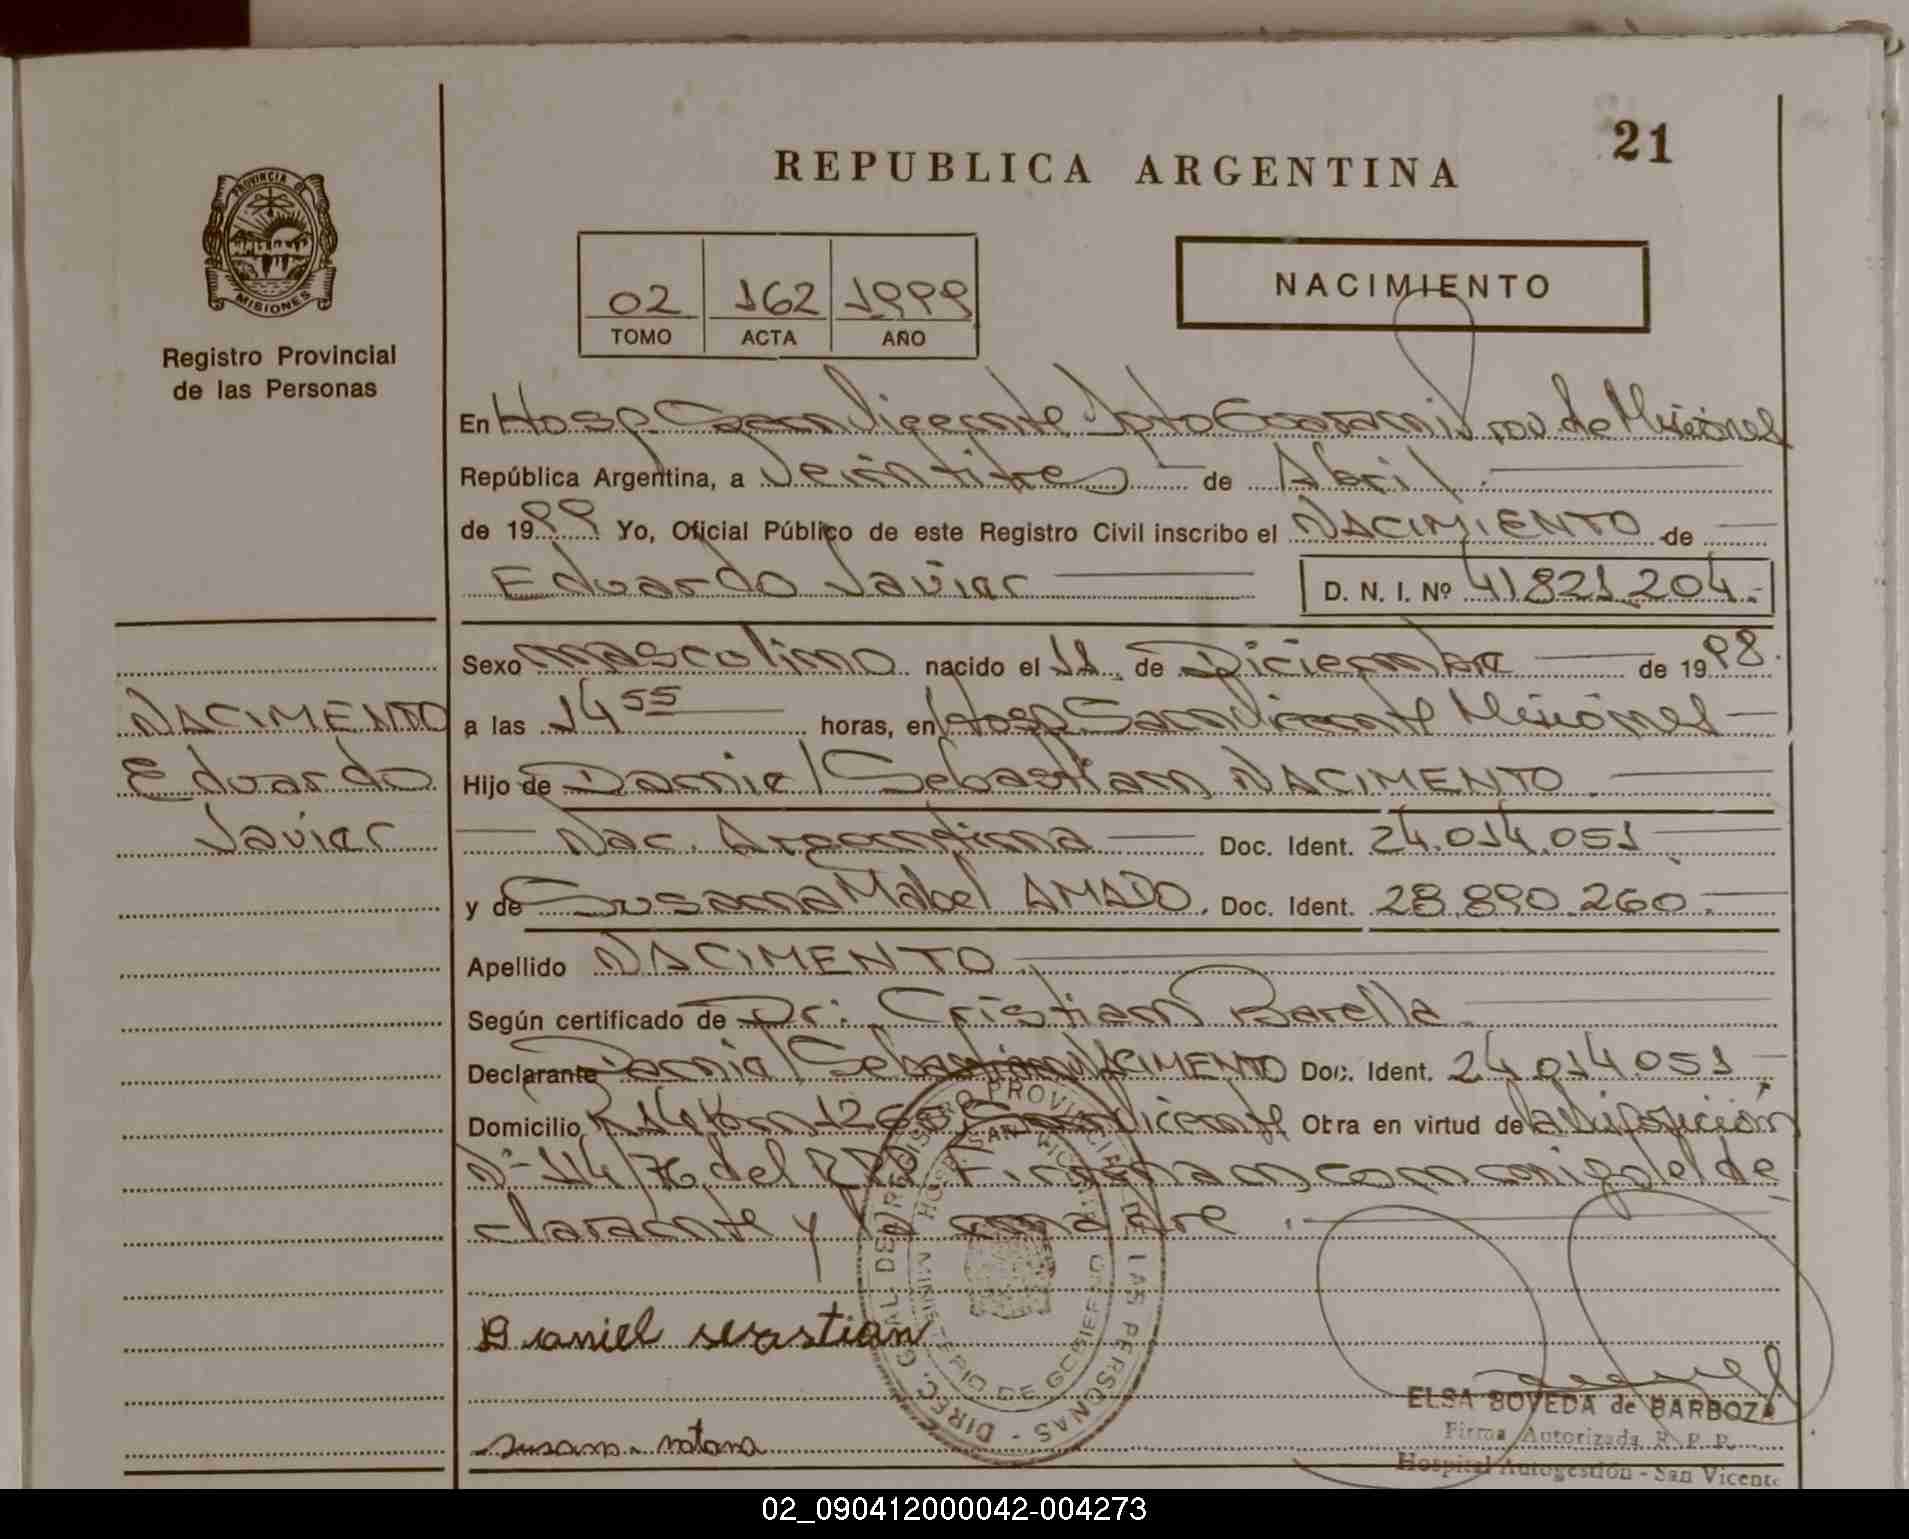 21
REPUBLICA ARGENTINA
PROVINCIA DE
MISIONES
Registro Provincial
de las Personas
02 162 1999
TOMO ACTA AÑO
NACIMIENTO
En Hosp. San Vicente Dpto Guarani Prov. de Misiones
República Argentina, a Veintitres de Abril
de 1999 Yo, Oficial Público de este Registro Civil inscribo el NACIMIENTO de
Eduardo Javier D. N. I. Nº 41.821.204.-
Sexo masculino nacido el 11 de Diciembre de 1998.
a las 14 55 horas, en Hosp San Vicente Misiones
Hijo de Daniel Sebastian NACIMENTO.
Nac. Argentina Doc. Ident. 24.014.051
y de Susana Mabel AMADO. Doc. Ident. 28.890.260.
Apellido NACIMENTO.
Según certificado de Dr: Cristian Barella.
Declarante Daniel Sebastian NACIMENTO Doc. Ident. 24.014.051.
Domicilio R 14 Km 1260 San Vicente Otra en virtud de la Disposición
Nº 114/76 del RPP. Firman con migo el de
clarante y la madre.
NACIMENTO
Eduardo
Javier
DIREC. GRAL. DE REGISTRO PROVINCIAL DE LAS PERSONAS -
HOSP. SAN VICENTE
MINISTERIO DE GOBIERNO
Daniel sesastian
susana
ELSA BOVEDA de BARBOZA
Firma Autorizada R. P. P.
Hospital Autogestión - San Vicente
02_090412000042-004273